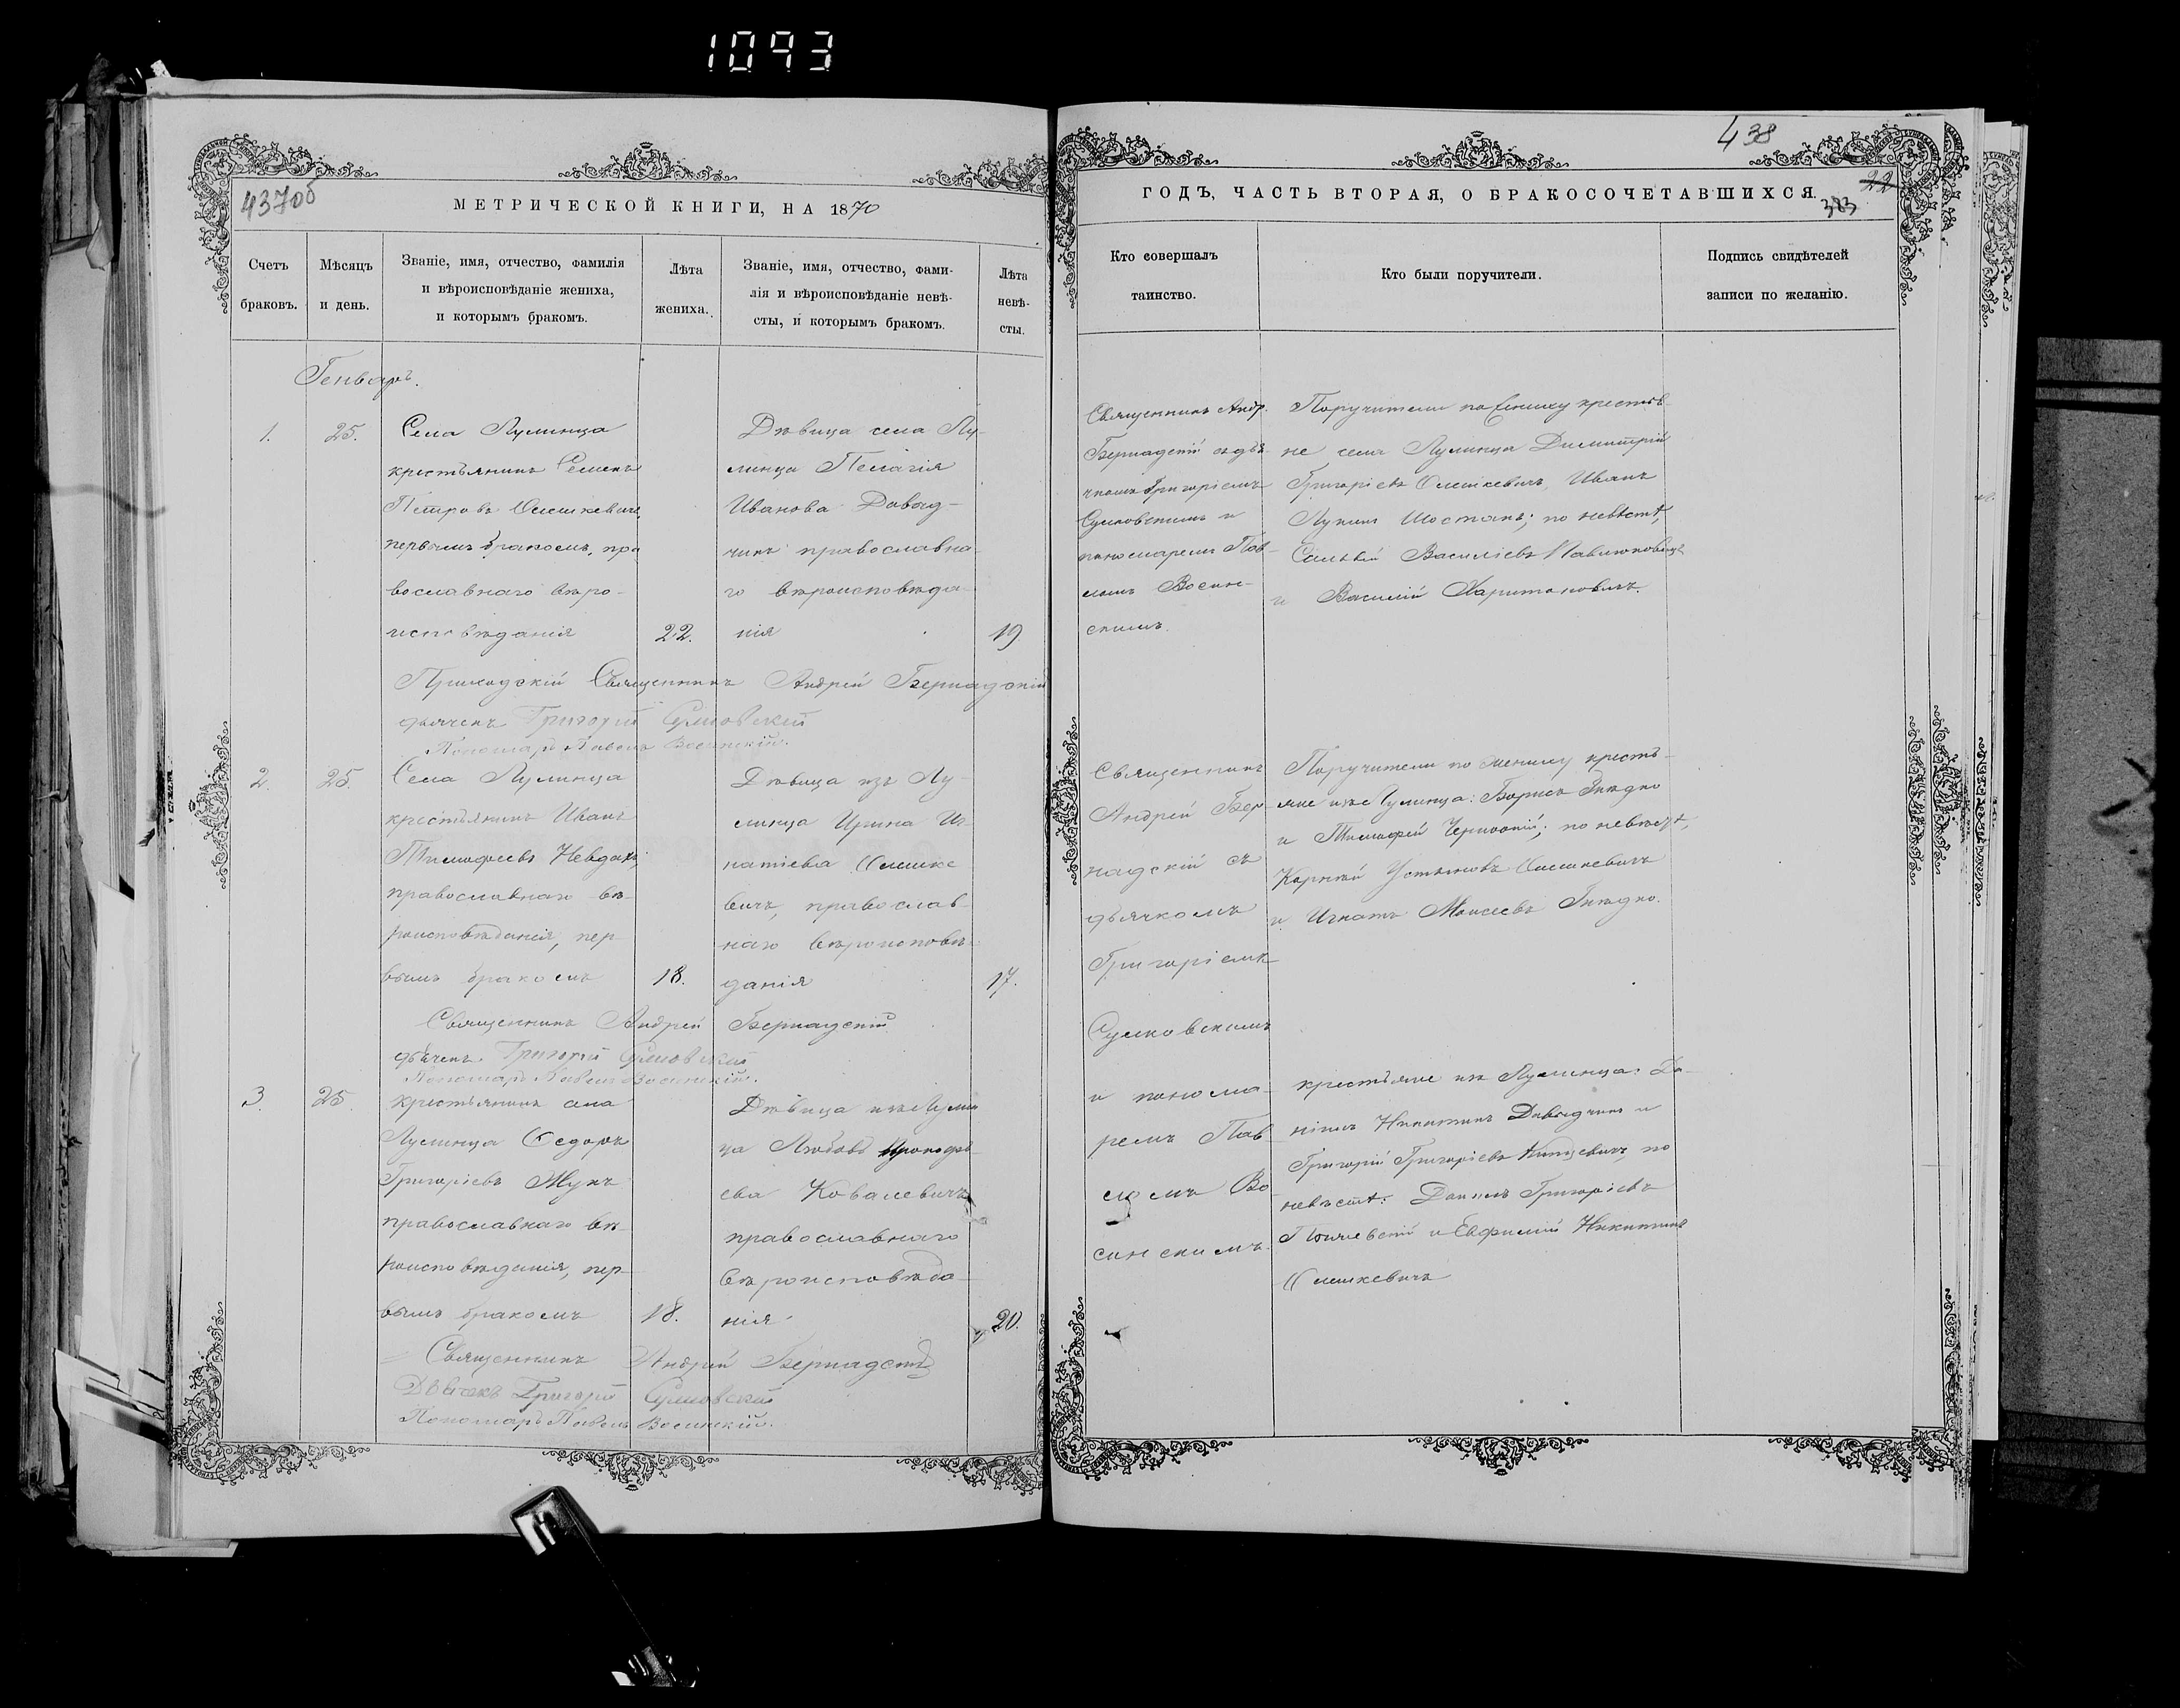 1093
437об
МЕТРИЧЕСКОЙ КНИГИ, НА 1870
Счетъ браковъ.
Мѣсяцъ и день.
Званіе, имя, отчество, фамилія
и вѣроисповѣданіе жениха,
и которымъ бракомъ.
Лѣта жениха.
Званіе, имя, отчество, фами-
лія и вѣроисповѣданіе невѣ-
сты, и которымъ бракомъ.
Лѣта невѣ-
сты.
Генварь.
1.
25.
Села Лулинца
крестьянинъ Семенъ
Петровъ Олешкевичъ,
первымъ бракомъ, пра
вославнаго вѣро-
исповѣданія
22.
Дѣвица села Лу-
линца Пелагія
Иванова Давид-
чикъ православна-
го вѣроисповѣда-
нія
19
Приходскій Священникъ Андрей Бернадскій
дьячекъ Григорій Сулковскій
Пономарь Павелъ Восинскій.
2.
25.
Села Лулинца
крестьянинъ Иванъ
Тимофеевъ Невдахъ,
православнаго вѣ-
роисповѣданія, пер-
вымъ бракомъ
18.
Дѣвица изъ Лу-
линца Ирина Иг-
натіева Олешке
вичъ, православ-
наго вѣроисповѣ-
данія
17.
Священникъ Андрей Бернадскій
дьячекъ Григорій Сулковскій
Пономарь Павелъ Восинскій.
3.
25
крестьянинъ села
Лулинца Ѳедоръ
Григоріевъ Жукъ
православнаго вѣ-
роисповѣданія, пер-
вымъ бракомъ
18.
Дѣвица изъ Лулин
ца Любовь
ева Ковалевичъ
православнаго
вѣроисповѣда-
нія
20.
Священникъ Андрей Бернадскій
Дьячекъ Григорій Сулковскій
Пономарь Павелъ Восинскій.
438
22
383
ГОДЪ, ЧАСТЬ ВТОРАЯ, О БРАКОСОЧЕТАВШИХСЯ.
Кто совершалъ
таинство.
Кто были поручители.
Подпись свидѣтелей
записи по желанію.
Священникъ Андр.
Бернадскій съ дья
чкомъ Григоріемъ
Сулковскимъ и
пономаремъ Пав-
ломъ Восин-
скимъ.
Поручители по жениху крестья-
не села Лулинца Димитрій
Григоріевъ Олешкевичъ, Иванъ
Лукинъ Шостакъ; по невѣстѣ,
Василіевъ Павлюковецъ
и Василій Харитоновичъ.
Священникъ
Андрей Бер-
надскій съ
дьячкомъ
Григоріемъ
Сулковскимъ
и понома-
ремъ Пав-
ломъ Во-
синскимъ.
Поручители по жениху кресть-
яне изъ Лулинца: Борисъ Гнѣдко
и Тимофей; по невѣстѣ,
Корнѣй Устиновъ Олешкевичъ
и Игнатъ Моисеевъ Гнѣдко.
крестьяне изъ Лулинца: Да-
ніилъ Никитинъ Давидчикъ и
Григорій Григоріевъ, по
невѣстѣ: Даніилъ Григоріевъ
и Евфимій Никитинъ
Олешкевичъ